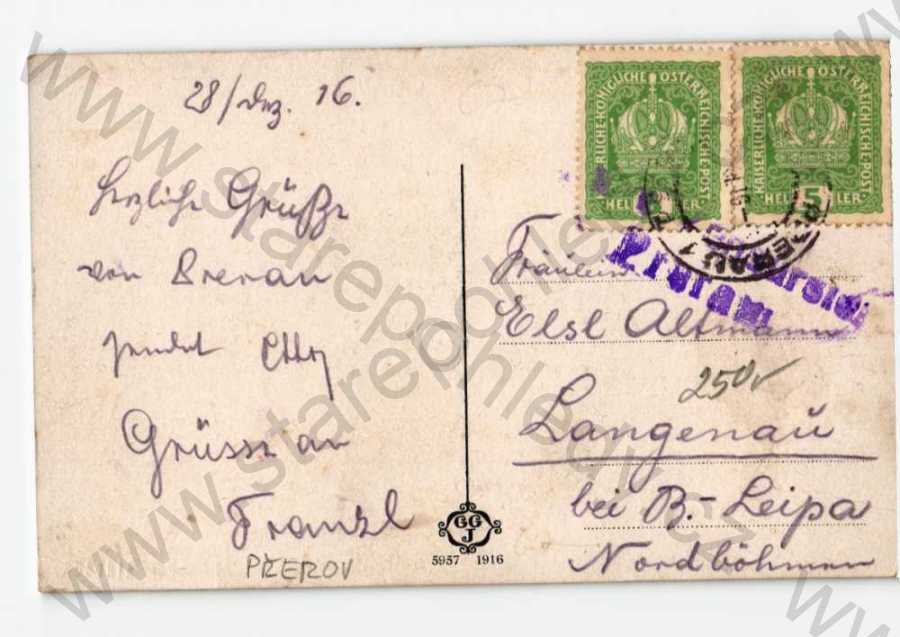 28/Dez. 16.
herzliche Grüße
von Prerau
sendet
Grüsse an
Franzl
PŘEROV
KAISERLICHE KÖNIGLICHE ÖSTERREICHISCHE POST
5 HELLER
KAISERLICHE KÖNIGLICHE ÖSTERREICHISCHE POST
5 HELLER
PRERAU 1
Fräulein
Elsl Altmann
250,-
Langenau
bei B.-Leipa
Nordböhmen
GGJ
5957 1916
www.starepohledy.cz